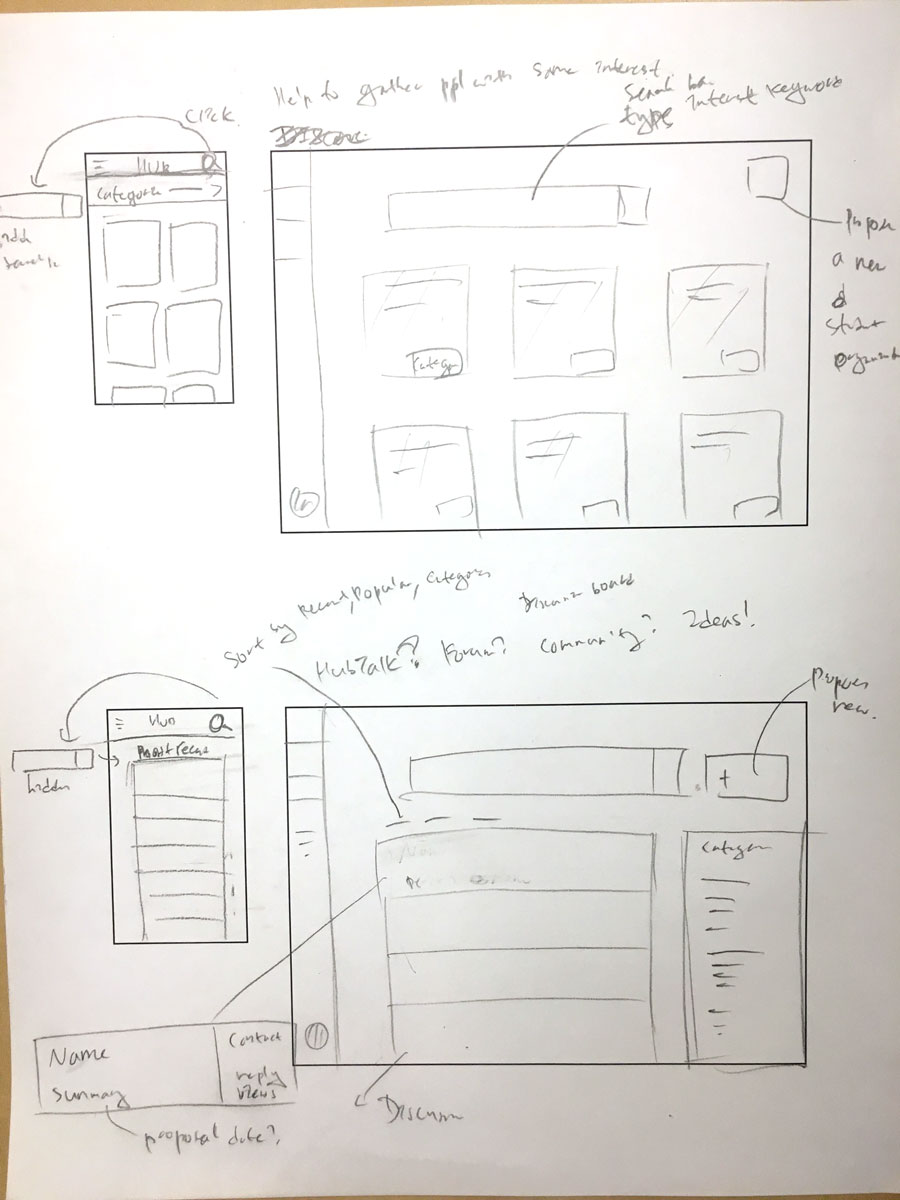 Help to gather ppl with same interest
Search bar
type interest keyword
Click
Hub
Categora
hidden
search
Propose
a new
&
start
Categor
Sort by Recent, Popular, Categories
Discuss board
HubTalk? Forum? Community? Ideas!
Propose
new.
Hub
hidden
+
Categor
Name
Summary
Contact
reply
views
proposal date?
Discussion